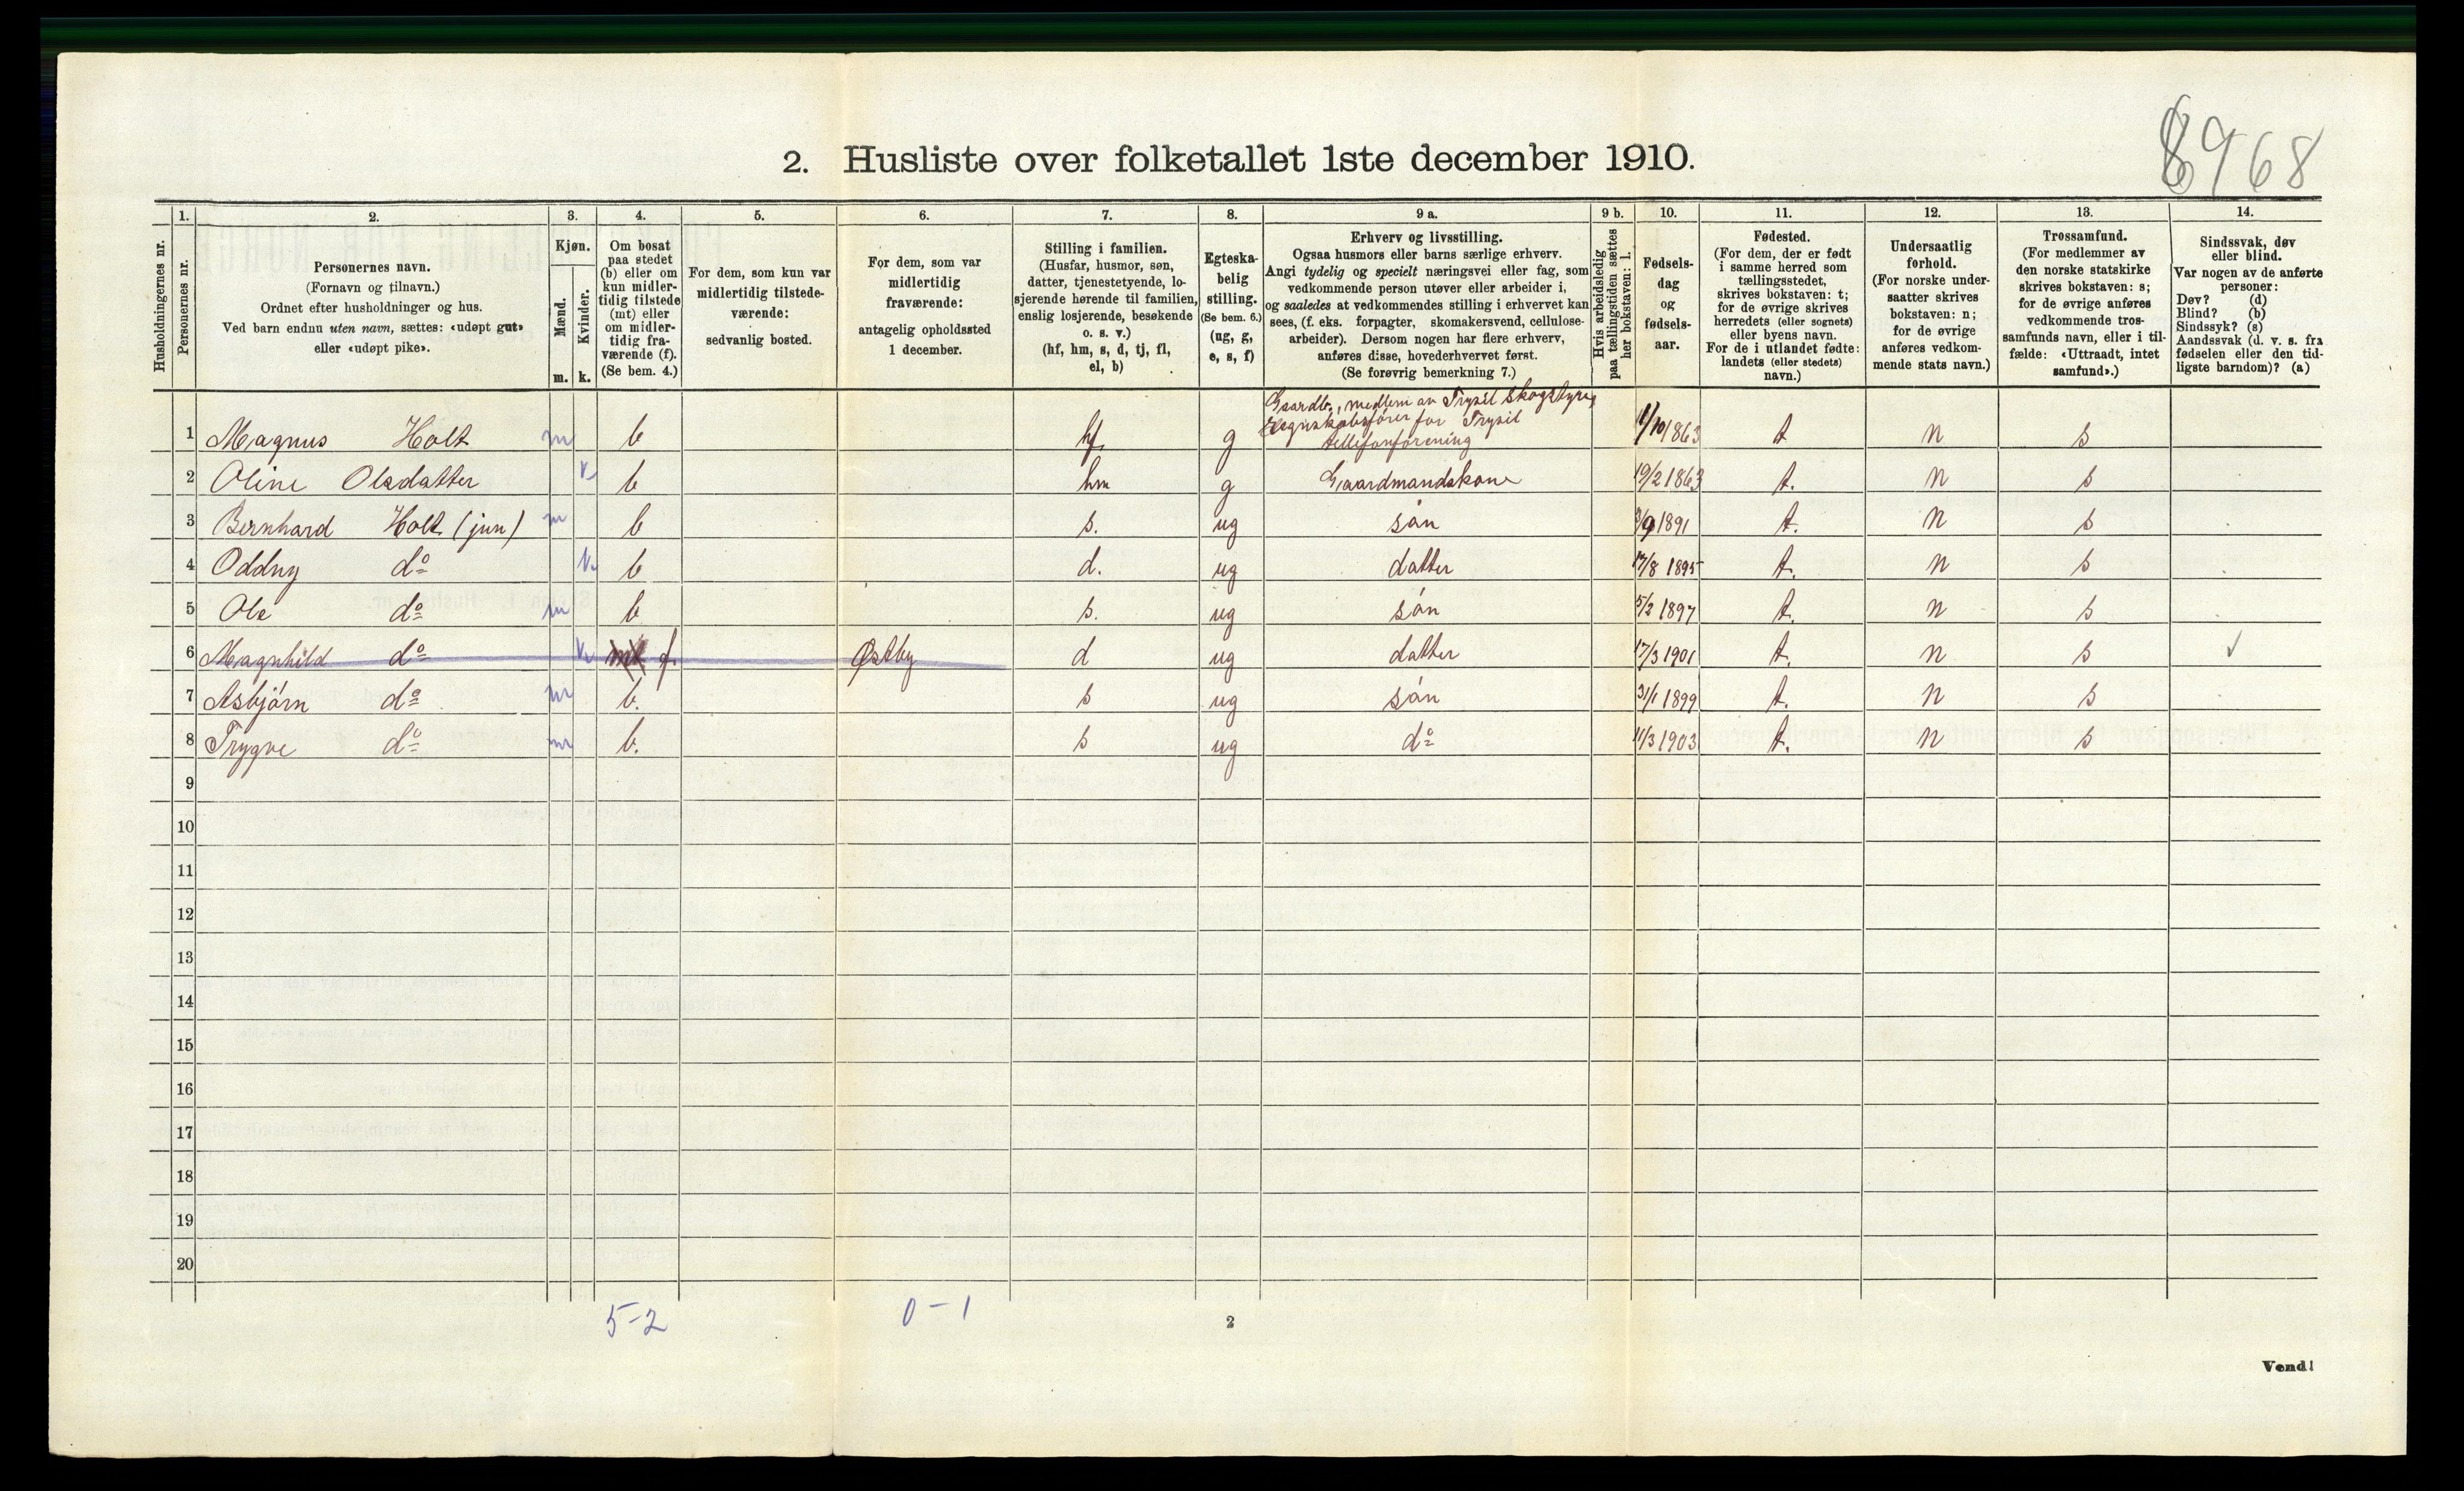 8968
2. Husliste over folketallet 1ste december 1910.
Husholdningernes nr.
1.
Personernes nr.
2.
Personernes navn.
(Fornavn og tilnavn.)
Ordnet efter husholdninger og hus.
Ved barn endnu uten navn, sættes: «udøpt gut»
eller «udøpt pike».
3.
Kjøn.
Mænd.
Kvinder.
m. k.
4.
Om bosat
paa stedet
(b) eller om
kun midler-
tidig tilstede
(mt) eller
om midler-
tidig fra-
værende (f).
(Se bem. 4.)
5.
For dem, som kun var
midlertidig tilstede-
værende:
sedvanlig bosted.
6.
For dem, som var
midlertidig
fraværende:
antagelig opholdssted
1 december.
7.
Stilling i familien.
(Husfar, husmor, søn,
datter, tjenestetyende, lo-
sjerende hørende til familien,
enslig losjerende, besøkende
o. s. v.)
(hf, hm, s, d, tj, fl,
el, b)
8.
Egteska-
belig
stilling.
(Se bem. 6.)
(ug, g,
e, s, f)
9 a.
Erhverv og livsstilling.
Ogsaa husmors eller barns særlige erhverv.
Angi tydelig og specielt næringsvei eller fag, som
vedkommende person utøver eller arbeider i,
og saaledes at vedkommendes stilling i erhvervet kan
sees, (f. eks. forpagter, skomakersvend, cellulose-
arbeider). Dersom nogen har flere erhverv,
anføres disse, hovederhvervet først.
(Se forøvrig bemerkning 7.)
9 b.
Hvis arbeidsledig
paa tællingstiden sættes
her bokstaven: l.
10.
Fødsels-
dag
og
fødsels-
aar.
11.
Fødested.
(For dem, der er født
i samme herred som
tællingsstedet,
skrives bokstaven: t;
for de øvrige skrives
herredets (eller sognets)
eller byens navn.
For de i utlandet fødte:
landets (eller stedets)
navn.)
12.
Undersaatlig
forhold.
(For norske under-
saatter skrives
bokstaven: n;
for de øvrige
anføres vedkom-
mende stats navn.)
13.
Trossamfund.
(For medlemmer av
den norske statskirke
skrives bokstaven: s;
for de øvrige anføres
vedkommende tros-
samfunds navn, eller i til-
fælde: «Uttraadt, intet
samfund».)
14.
Sindssvak, døv
eller blind.
Var nogen av de anførte
personer:
Døv? (d)
Blind? (b)
Sindssyk? (s)
Aandssvak (d. v. s. fra
fødselen eller den tid-
ligste barndom)? (a)
Gaardbr., medlem av Trysil Skogstyre,
Regnskabsfører for Trysil
1 Magnus Holt m b hf. g tellefonforening 11/10 1863 t n s
2 Oline Olsdatter k b hm g Gaardmandskone 19/2 1863 t. n s
3 Bernhard Holt (jun) m b s. ug søn 3/9 1891 t. n s
4 Oddny do k. b d. ug datter 17/8 1895 t. n s
5 Ole do m b s. ug søn 5/2 1897 t. n s
6 Magnhild do k mt f. Østby d ug datter 17/3 1901 t. n s √
7 Asbjørn do m b. s ug søn 31/1 1899 t. n s
8 Trygve do m b. s ug do 11/3 1903 t. n s
9
10
11
12
13
14
15
16
17
18
19
20
5-2 0-1
2
Vend!